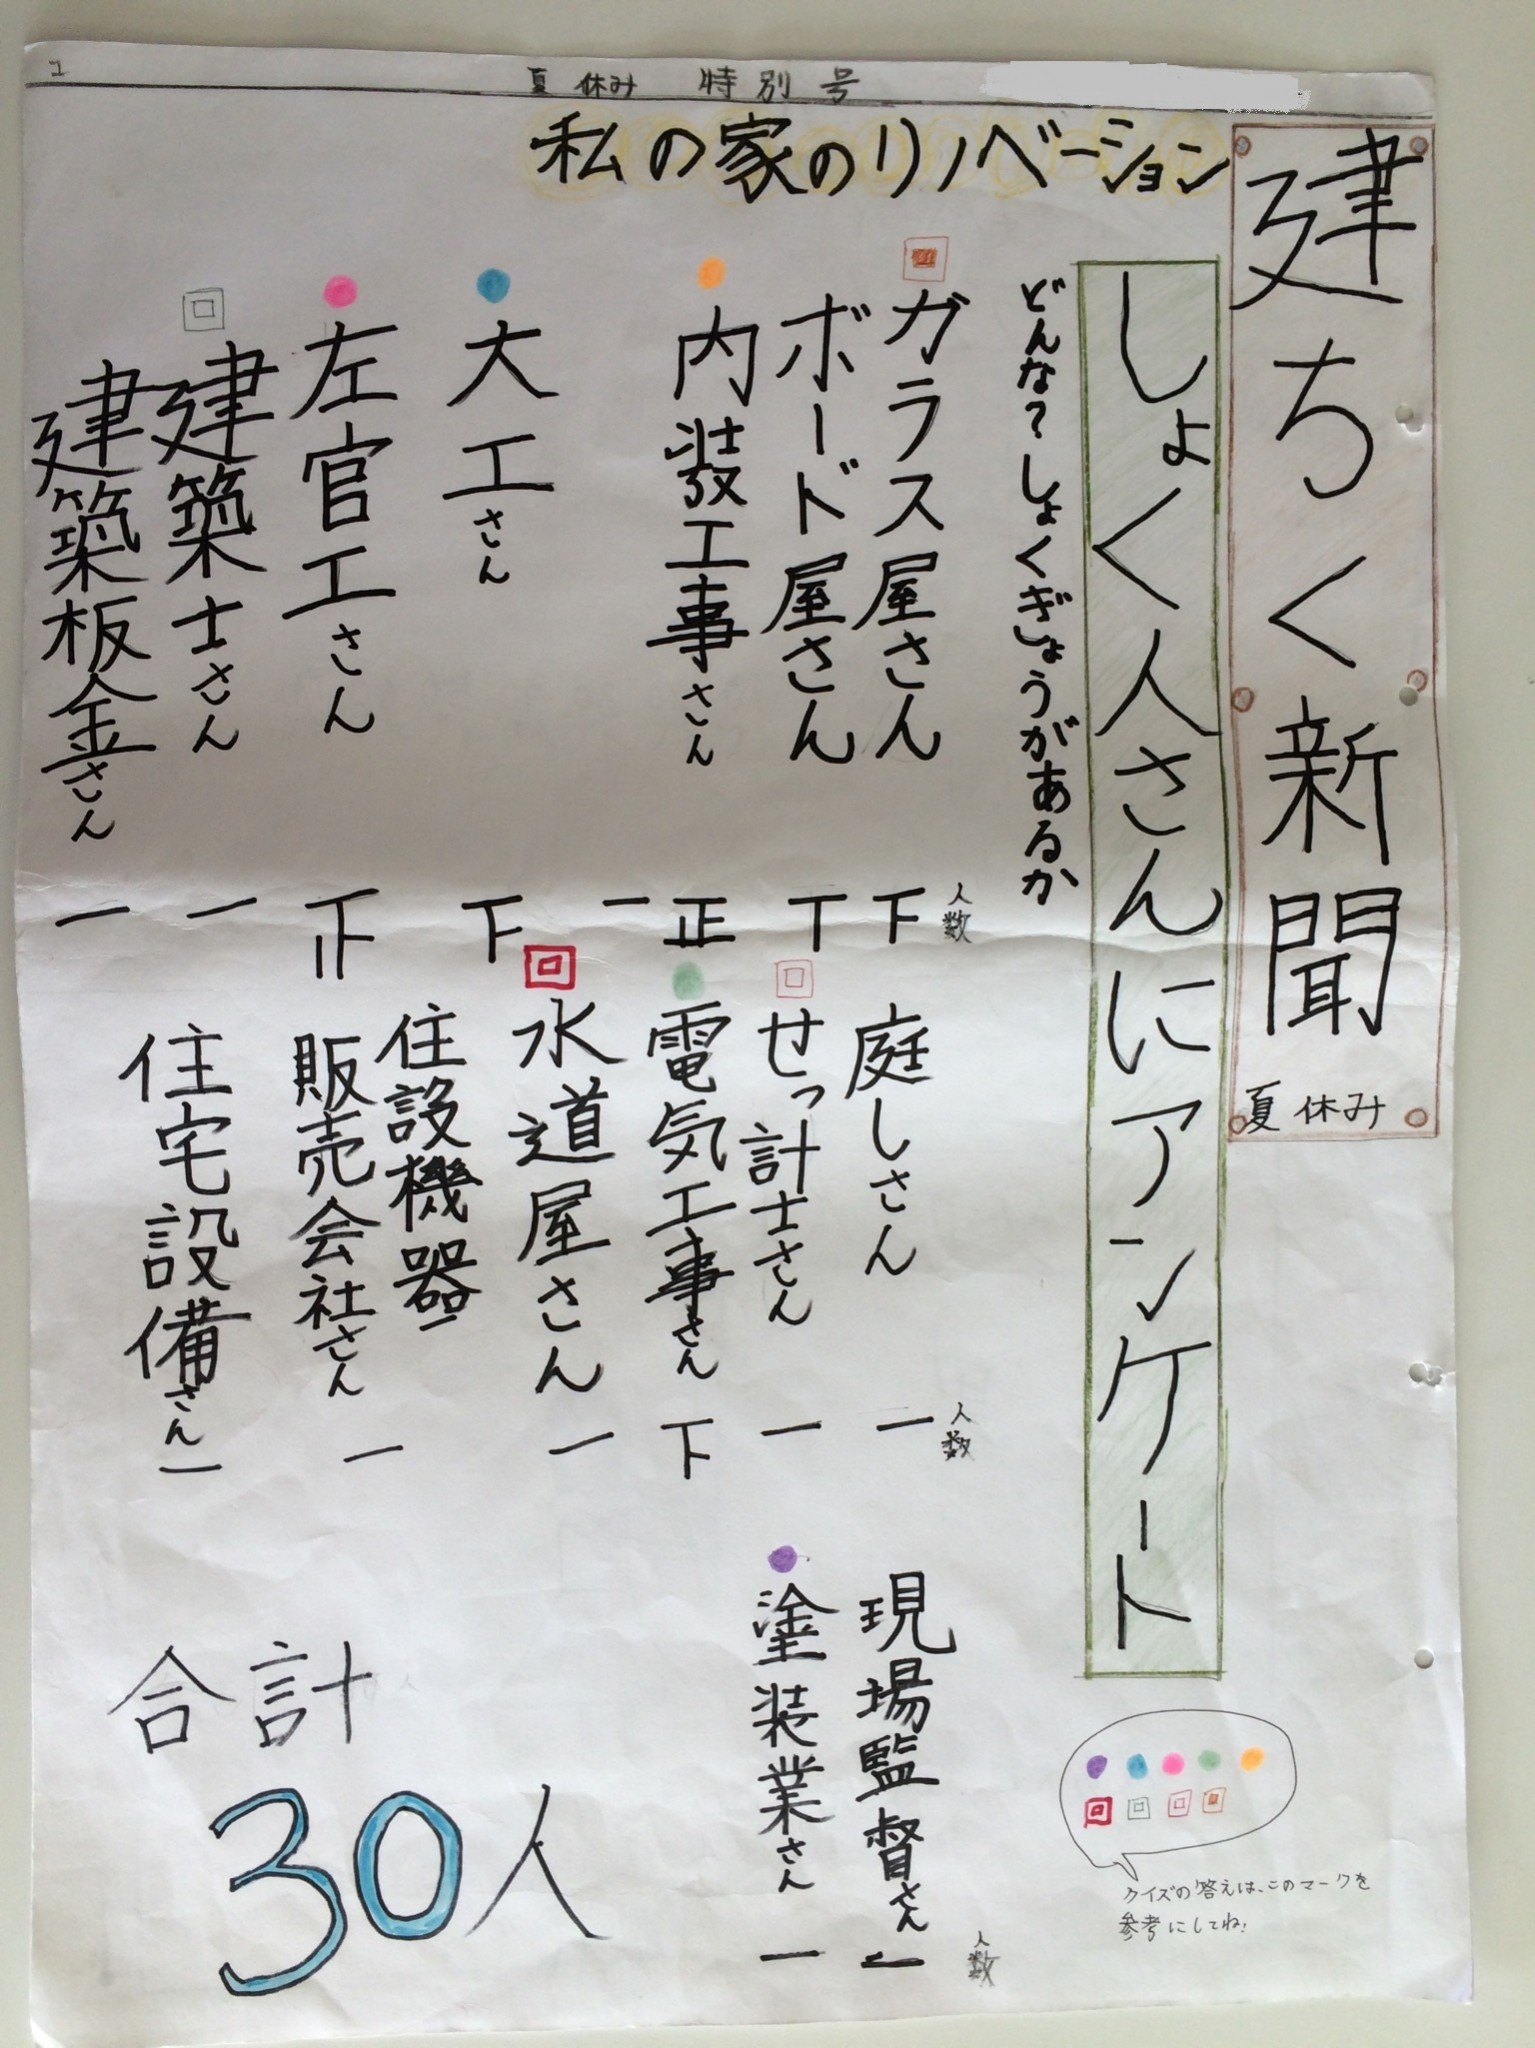 1
夏休み 特別号
建ちく新聞
夏休み
私の家のリノベーション
しょく人さんにアンケート
どんな?しょくぎょうがあるか
人数
ガラス屋さん 下
ボード屋さん 丅
内装工事さん 正一
大工さん 下
左官工さん 正
建築士さん 一
建築板金さん 一
人数
庭しさん 一
せっ計士さん 一
電気工事さん 下
水道屋さん 一
住設機器
販売会社さん 一
住宅設備さん 一
人数
現場監督さん 一
塗装業さん 一
合計
30人
クイズの答えは、このマークを
参考にしてね!